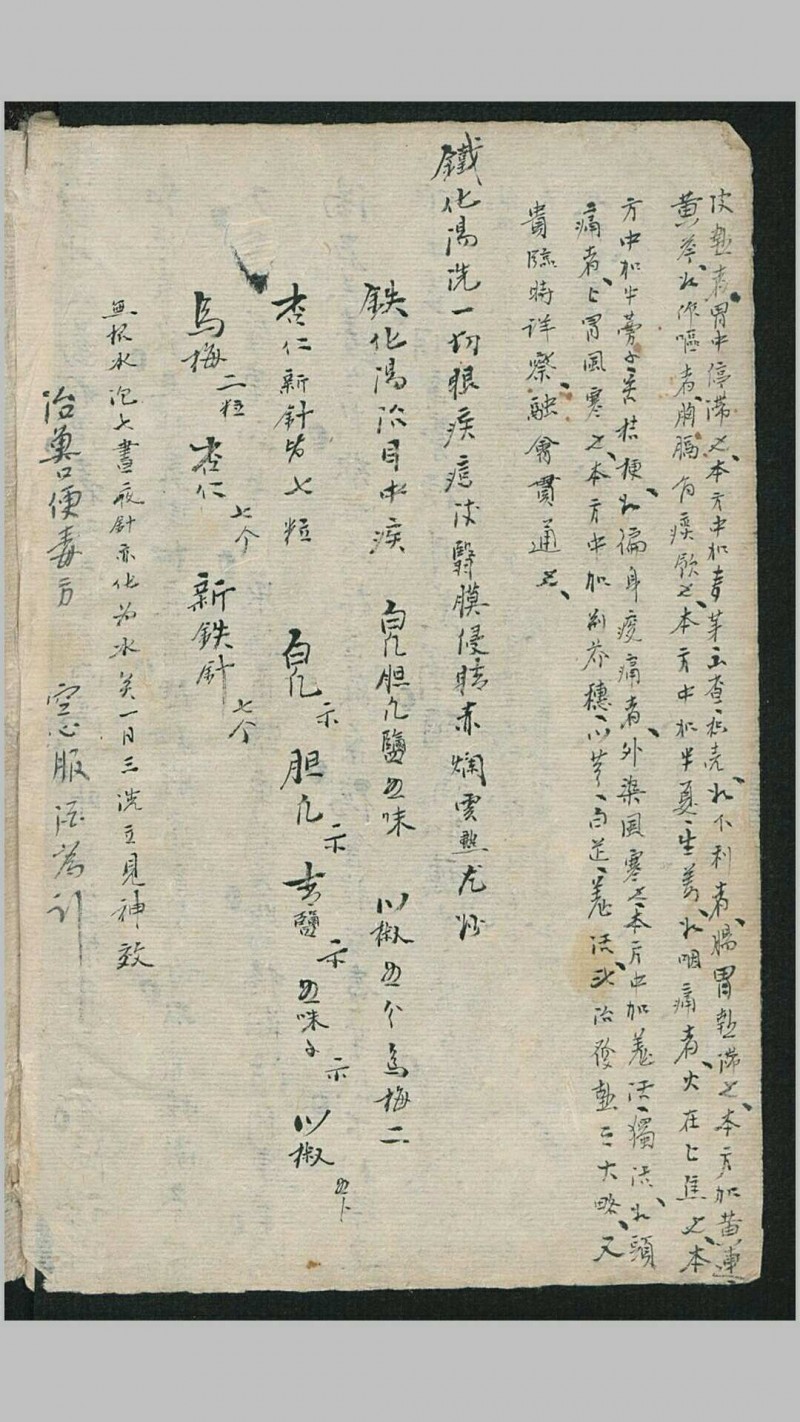 皮熱者、胃中停滯也、本方中加麥芽、山查、枳壳、如不利者、腸胃熱滯也、本方加黄連
黄芩、如作嘔者、胸膈有痰飲也、本方中加半夏、生姜、如咽痛者、火在上焦也、本
方中加牛蒡子、桔梗、如徧身疼痛者、外染風寒也、本方中加羌活、獨活、如頭
痛者、上冒風寒也、本方中加荆芥穗、川芎、白芷、羌活、此治發熱之大略、又
貴臨時詳察、融會貫通也、
鐵化湯洗一切眼疾痘皮翳膜侵睛赤爛雲熱尤妙
鉄化湯治目中疾 白凡胆凡鹽五味 川椒五个烏梅二
杏仁新針皆七粒 白凡 胆凡 青鹽 五味子 川椒
烏梅二粒 杏仁七个 新鉄針七个
無根水泡七晝夜針亦化為水矣一日三洗立見神效
治魚口便毒方 空心服酒為引